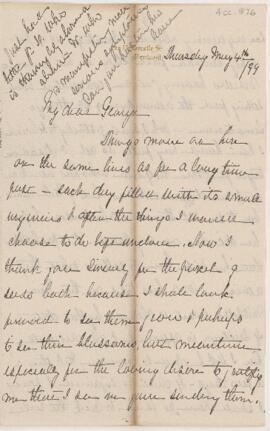 Acc. 876
Just had
letter fr. W. who
is
about Dr. who
is
Thursday May 4th
/99
My dear George
Things move on here
on the same lines as for a long time
past - each day filled with its small
& often the things I would
choose to do left undone. Now I
thank you sincerely for the parcel of
seeds both because I shall look
forward to see them grow & perhaps
to see their blossoms, but meantime
especially for the loving desire to gratify
me that I see in your sending them.